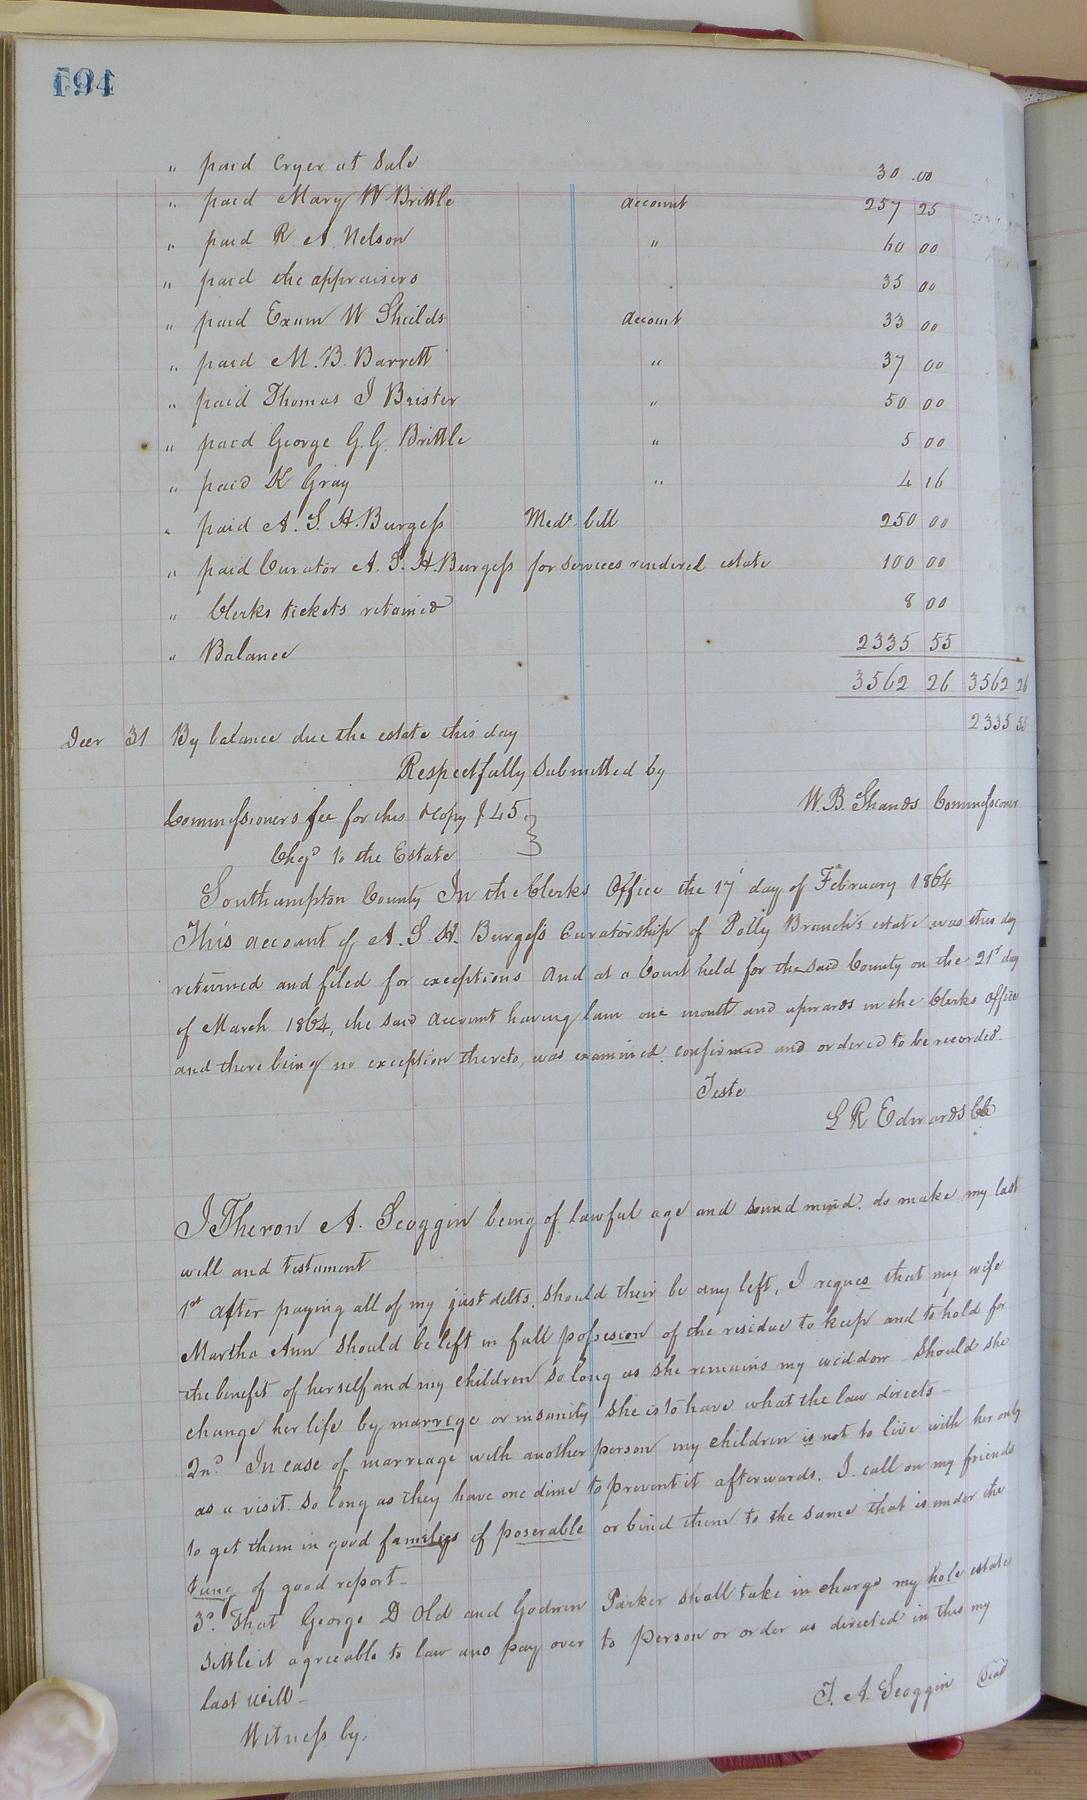 194
" paid Cryer at Sale 30 .00
" paid Mary W Brittle account 257 25
" paid R. A. Nelson " 60 00
" paid the appraisers 35 00
" paid Exum W Sheilds account 33 00
" paid M. B. Barrett " 37 00
" paid Thomas J Brister " 50 00
" paid George G. G. Brittle " 5 00
" paid K Gray " 4 16
" paid A. S. H. Burgess Med. bill 250 00
" paid Curator A. S. H. Burgess for services rendered estate 100 00
" Clerks tickets retained 8 00
" Balance 2335 55
3562 26 3562 26
2335 55
Decr 31 By balance due the estate this day
Respectfully Submitted by
W. B. Shands Commissioner
Commissioners fee for this &copy $45
Chgd to the Estate
Southampton County In the Clerks Office the 17' day of February 1864
This account of A. S H. Burgess Curatorship of Polly Branch's estate was this day
returned and filed for exceptions And at a Court held for the said County on the 21st day
of March 1864, the said account having lain one month and upwards in the Clerks office
and there being no exception thereto, was examined, confirmed and ordered to be recorded.
Teste
L R Edwards CC
I Theron A. Scoggin being of lawful age and sound mind. do make my last
will and testament
1st After paying all of my just debts, should their be any left, I reques that my wife
Martha Ann should be left in full possesion of the residue to keep and to hold for
the benefit of herself and my children so long as she remains my widdow should she
change her life by marrege or insanity she is to have what the law directs -
2nd. In case of marriage with another person my children is not to live with her only
as a visit. so long as they have one dime to prevent it afterwards. I call on my friends
to get them in good families if poserable or bind them to the same that is under the
tung of good report -
3d. That George D Old and Godwin Parker shall take in charge my hole estate
settle it agreeable to law and pay over to person or order as directed in this my
last will -
T. A. Scoggin Seal
Witness by: